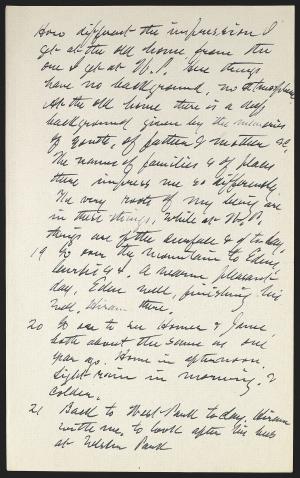 How different the impression I
get at the old home from the
one I get at W.P. Here things
have no background, no atmosphere.
At the old home there is a deep
background given by the memories
of youth, of father & mother &c.
The names of families & of places
there impress me so differently
The very roots of my being are
in these things, while at W.P.
things are of the surface & of today.
19 Go over the mountain to Edens,
A warm pleasant
day, Eden well, finishing his
well. Hiram there.
20 Go over to see Homer & Jane,
both about the same as one
year ago. Home in afternoon,
light rain in morning, &
colder.
21 Back to West Park to-day. Hiram
with me, to look after his bees
at West Park